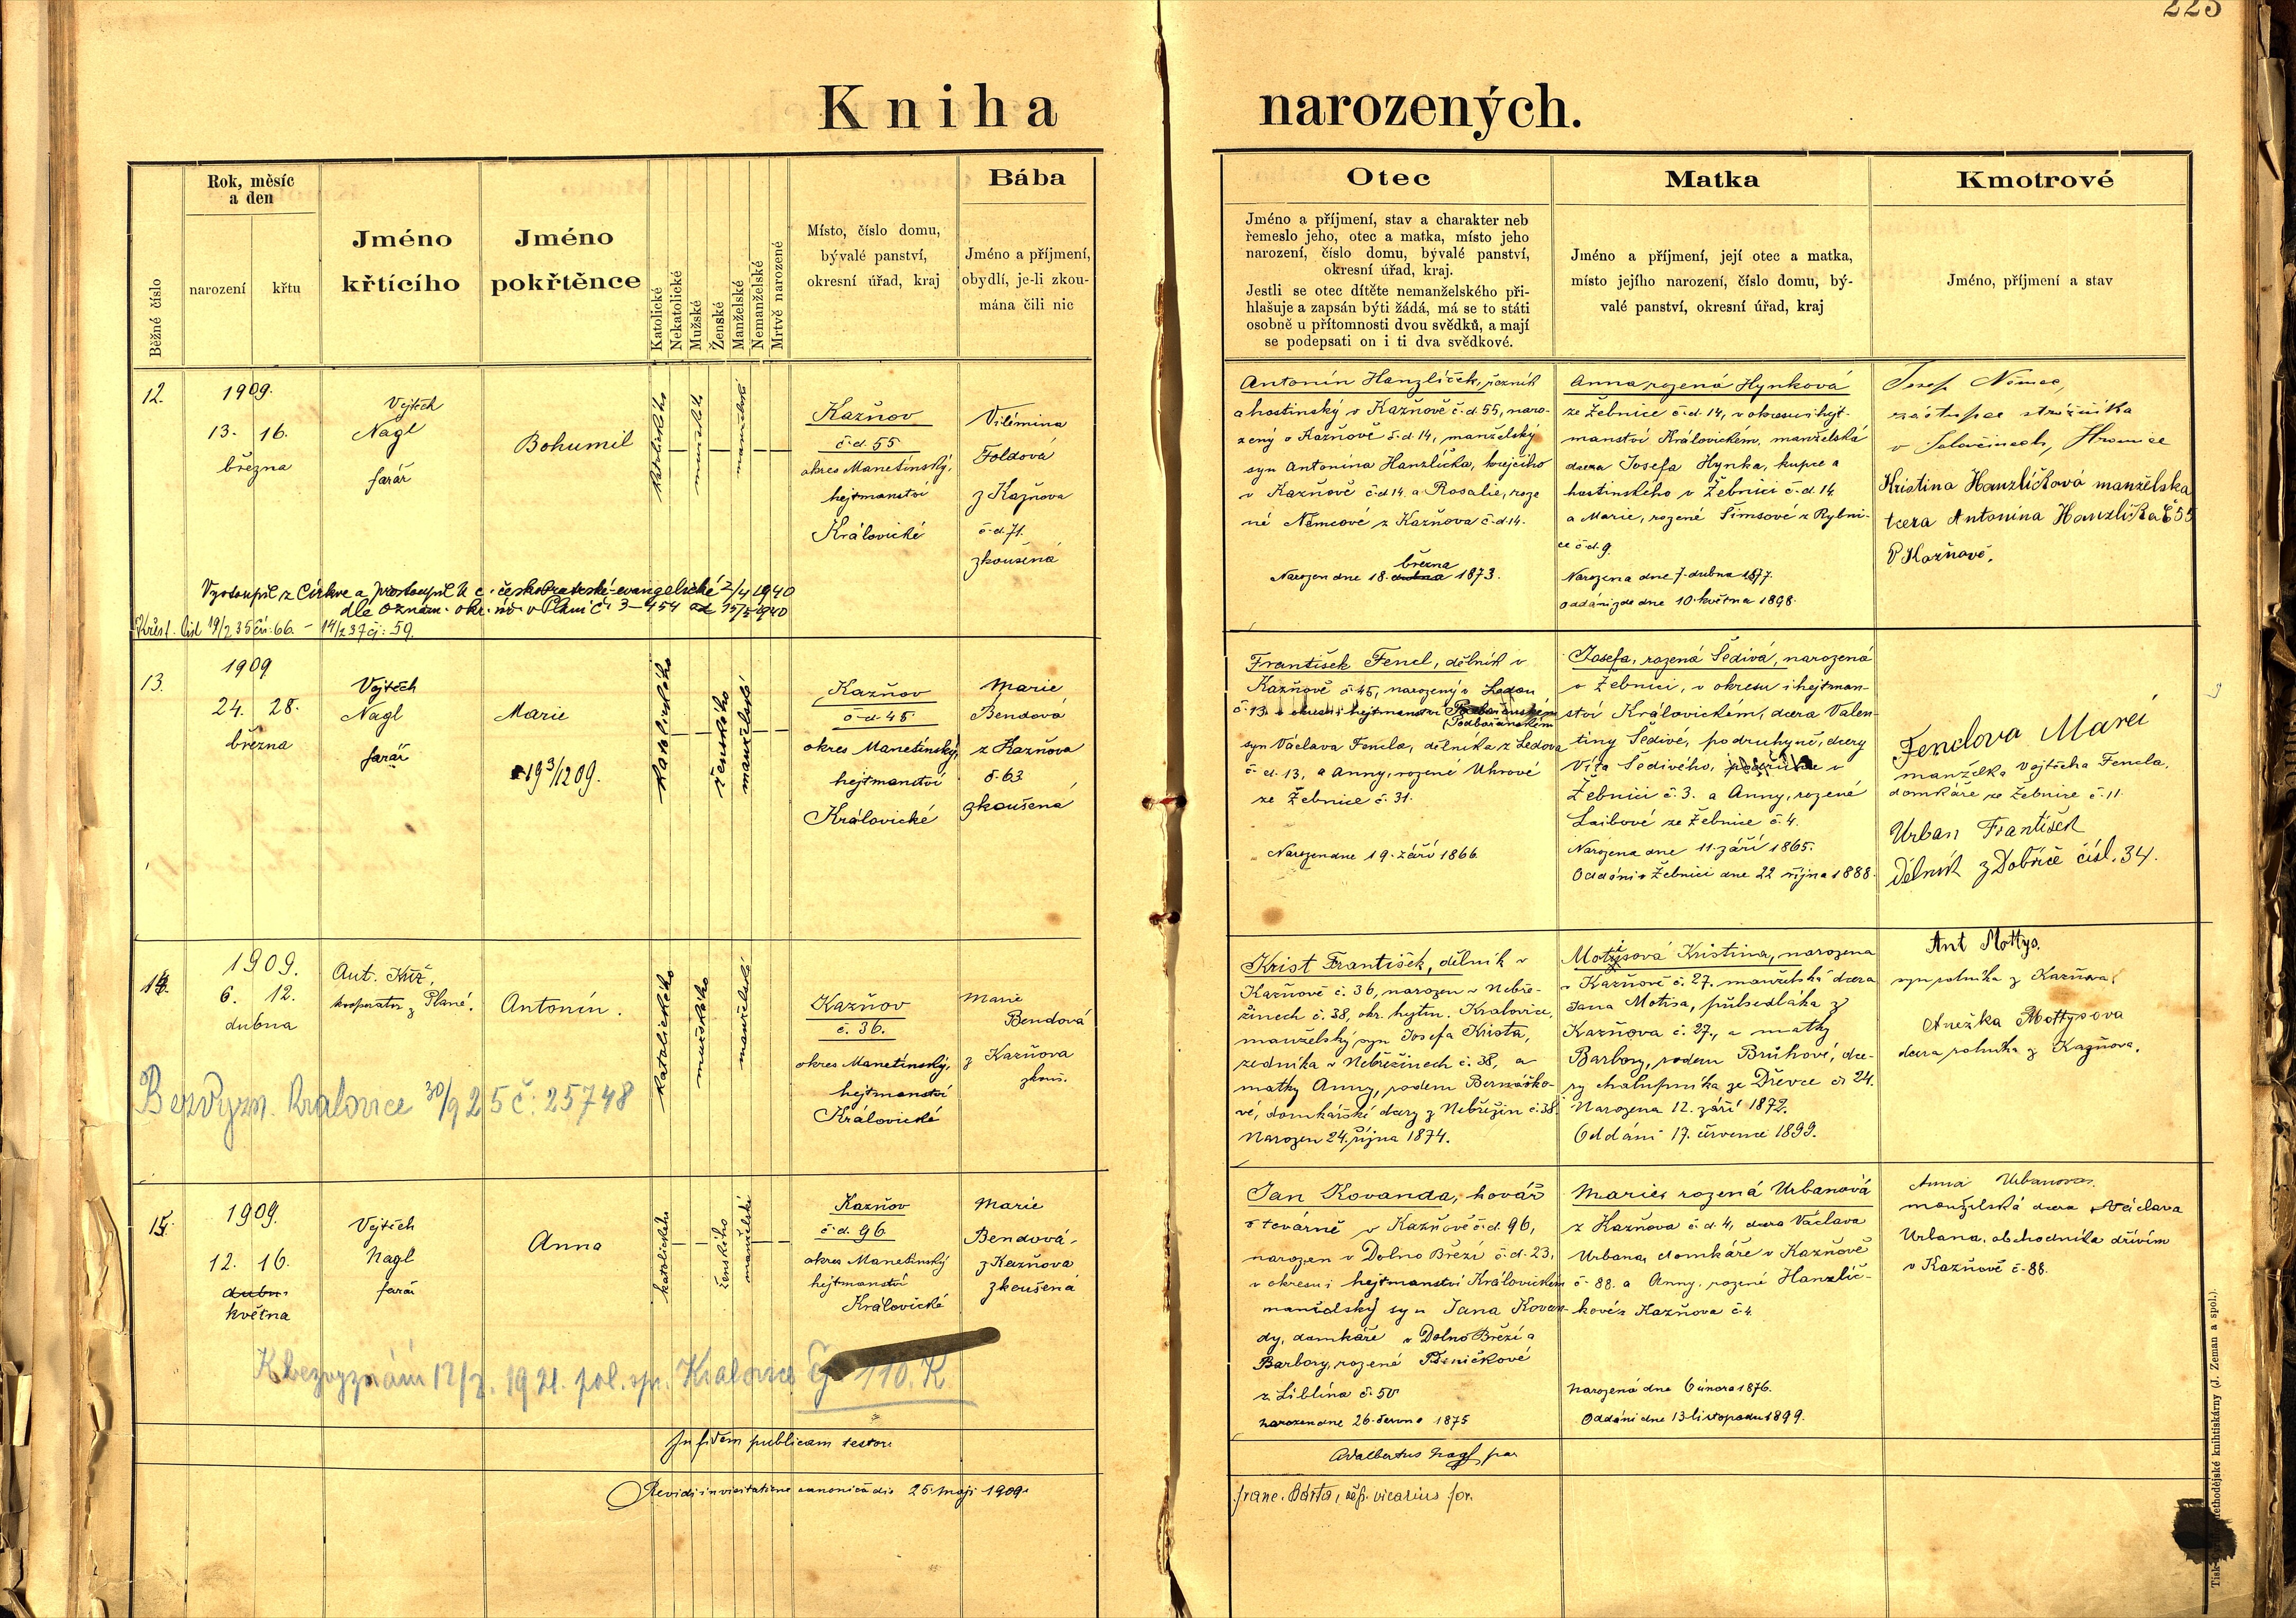 225
Kniha narozených.
Běžné číslo
Rok, měsíc
a den
narození
křtu
Jméno
křtícího
Jméno
pokřtěnce
Katolické
Nekatolické
Mužské
Ženské
Manželské
Nemanželské
Mrtvě narozené
Místo, číslo domu,
bývalé panství,
okresní úřad, kraj
Bába
Jméno a příjmení,
obydlí, je-li zkou-
mána čili nic
Otec
Jméno a příjmení, stav a charakter neb
řemeslo jeho, otec a matka, místo jeho
narození, číslo domu, bývalé panství,
okresní úřad, kraj.
Jestli se otec dítěte nemanželského při-
hlašuje a zapsán býti žádá, má se to státi
osobně u přítomnosti dvou svědků, a mají
se podepsati on i ti dva svědkové.
Matka
Jméno a příjmení, její otec a matka,
místo jejího narození, číslo domu, bý-
valé panství, okresní úřad, kraj
Kmotrové
Jméno, příjmení a stav
12.
1909.
13. 16.
března
Vojtěch
Nagl
farář
Bohumil
katolického
mužského
manželské
Kazňov
č.d. 55
okres Manetínský,
hejtmanství
Královické
Vilémina
Foldová
z Kazňova
č.d. 71.
zkoušená
Antonín Hanzlíček, řezník
a hostinský v Kazňově č.d. 55, naro-
zený v Kazňově č.d. 14, manželský
syn Antonína Hanzlíčka, krejčího
v Kazňově č.d. 14 a Rosalie, roze
né Němcové z Kazňova č.d. 14.
března
Narozen dne 18. dubna 1873.
Anna rozená Hynková
ze Žebnice č.d. 14, v okresu i hejt-
manství Královickém, manželská
dcera Josefa Hynka, kupce a
hostinského v Žebnici č.d. 14
a Marie, rozené Šimsové z Rybni-
ce č.d. 9.
Narozena dne 7. dubna 1877.
Oddáni zde dne 10. května 1898.
Josef Němec,
zástupce strážníka
v
Kristina Hanzlíčková manželska
dcera Antonína Hanzlíčka č 55
v Kazňově.
Vystoupil z Církve a přistoupil k c. českobratrské-evangelické 2/4 1940
dle oznám. okr. úř. v Plzni č. 3-454 ad 15/5 1940
Křest. list 19/2 35 čís. 66. – 14/2 37 čj: 59.
13.
1909
24. 28.
března
Vojtěch
Nagl
farář
Marie
19 3/12 09.
katolického
ženského
manželské
Kazňov
č.d. 45.
okres Manetínský,
hejtmanství
Královické
Marie
Bendová
z Kazňova
č. 63
zkoušená
František Fencl, dělník v
Kazňově č. 45, narozený v Ledou
č. 13. v okresu i hejtmanství Podbořanském
(Podbořanském
syn Václava Fencla, dělníka z Ledova
č.d. 13, a Anny, rozené Uhrové
ze Žebnice č. 31.
Narozen dne 19. září 1866.
Josefa, rozená Šedivá, narozená
v Žebnici, v okresu i hejtman-
ství Královickém, dcera Valen-
tiny Šedivé, podruhyně, dcery
Víta Šedivého, v
Žebnici č. 3. a Anny, rozené
Laibové ze Žebnice č. 4.
Narozena dne 11. září 1865.
Oddáni v Žebnici dne 22 října 1888.
Fenclova Marei
manželka Vojtěcha Fencla,
domkáře ze Žebnice č. 11.
Urban František
Dělník z Dobříče čísl. 34.
14.
1909.
6. 12.
dubna
Ant. Kříž,
kooperator z Plané.
Antonín.
katolického
mužského
manželské
Kazňov
č. 36.
okres Manetínský,
hejtmanství
Královické
Marie
Bendová
z Kazňova
zkouš.
Krist František, dělník v
Kazňově č. 36, narozen v Nebře-
žinech č. 38, okr. hejtm. Kralovice,
manželský syn Josefa Krista,
zedníka v Nebřežinech č. 38, a
matky Anny, rodem Bernáško-
vé, domkářské dcery z Nebřežin č. 38.
Narozen 24. října 1874.
Motisová Kristina, narozena
v Kazňově č. 27. manželská dcera
Jana Motisa, půlsedláka z
Kazňova č. 27., a matky
Barbory, rodem Brůhové, dce-
ry chalupníka ze Dřevce č. 24.
Narozena 12. září 1872.
Oddáni 17. července 1899.
Ant Mottys.
syn rolníka z Kazňova.
Anežka Mottysova
dcera rolníka z Kazňova.
Bezvyzn. Kralovice 30/9 25 č: 25748
15.
1909.
12. 16.
dubn.
května
Vojtěch
Nagl
farář
Anna
katolického
ženského
manželské
Kazňov
č.d. 96
okres Manetínský
hejtmanství
Královické
Marie
Bendová
z Kazňova
zkoušená
Jan Kovanda, kovář
v továrně v Kazňově č.d. 96,
narozen v Dolno Březí č.d. 23,
v okresu i hejtmanství Královickém
manželský syn Jana Kovan-
dy, domkáře v Dolno Březí a
Barbory, rozené Pšeničkové
z Liblína č. 50
narozen dne 26. června 1875
Marie, rozená Urbanová
z Kazňova č.d. 4, dcera Václava
Urbana, domkáře v Kazňově
č. 88. a Anny, rozené Hanzlíč-
kové z Kazňova č. 4.
Narozená dne 6 února 1876.
Oddáni dne 13 listopadu 1899.
Anna Urbanova.
manželská dcera Václava
Urbana, obchodníka dřívím
v Kazňově č. 88.
K bezvyznání 12/7. 1921. pol. spr. Kralovice čj 110. K
In fidem publicam testor:
Adalbertus Nagl, par
Revidi in visitatione canonica die 25. maji 1909.
Franc. Bárta, vicarius for.
Tisk
methodějské knihtiskárny (J. Zeman a spol.).